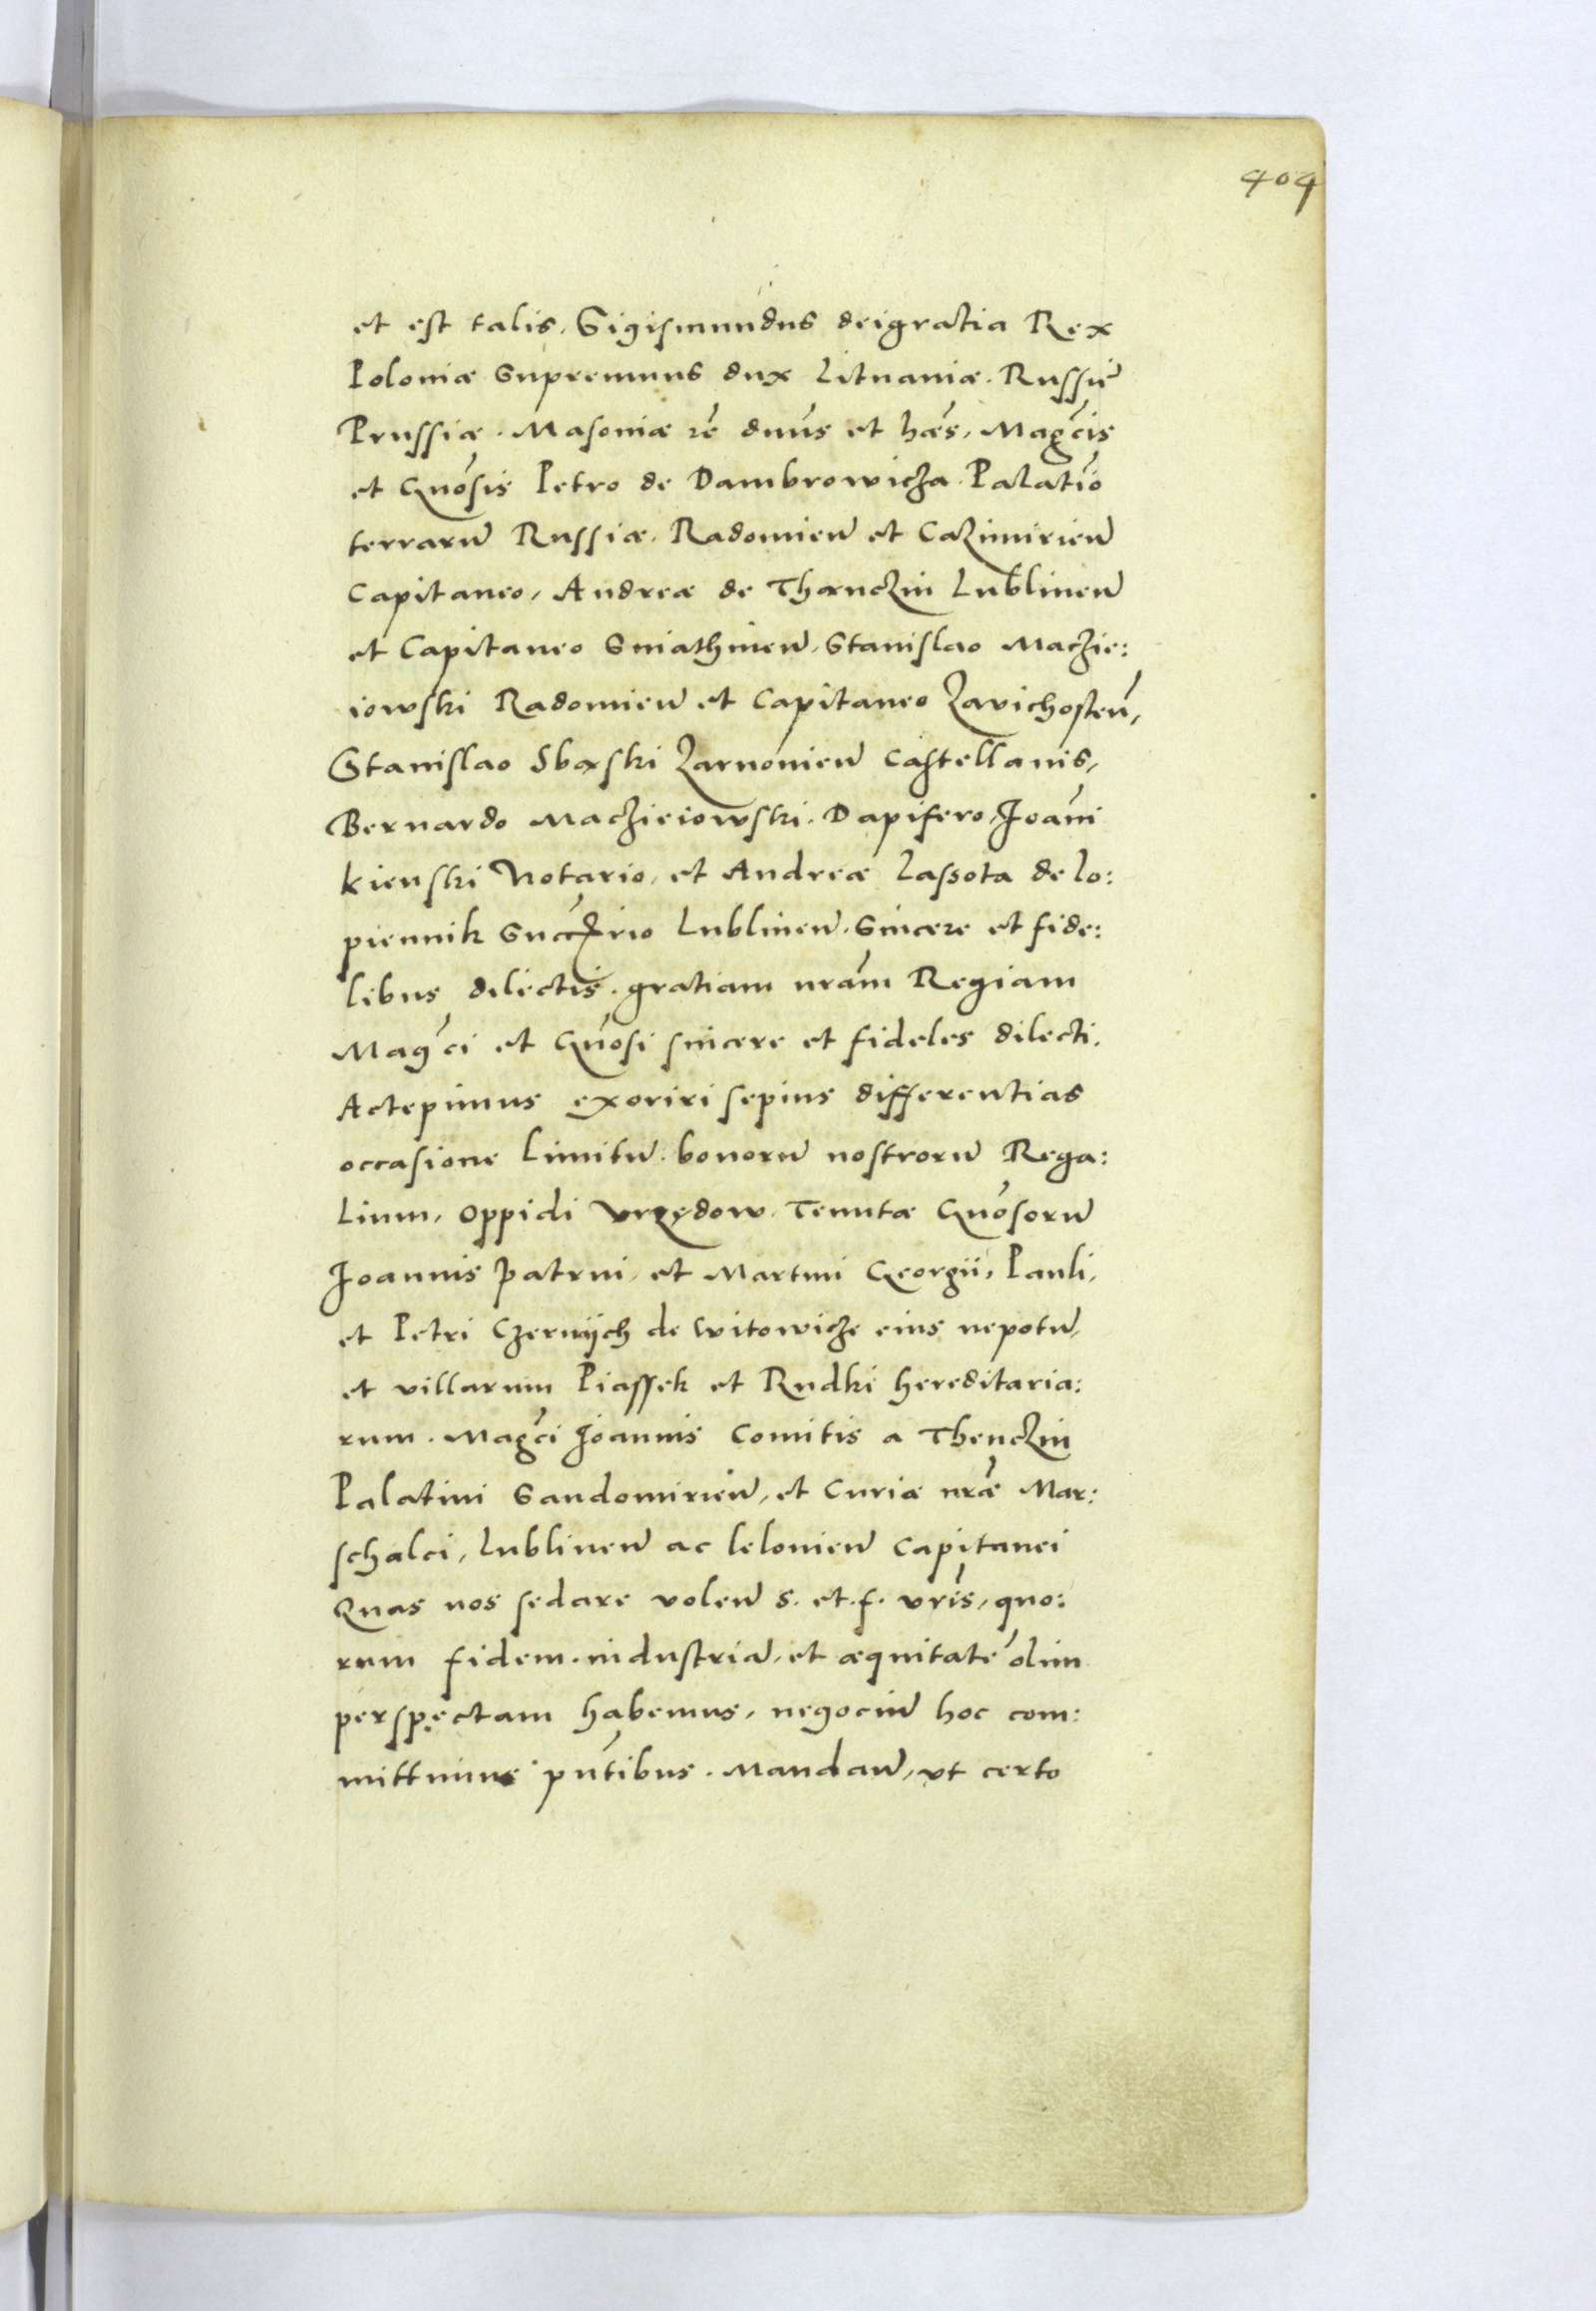 404
et est talis, Sigismundus deigratia Rex
Poloniæ Supremus dux Lituaniæ. Russiē
Prussiæ. Masoniæ rē dnūs et hæs, Magcīs
et Gnōsis Petro de Dambrowicza. Palatīo
terrarū Russiæ. Radomieñ et Cazimirieñ
Capitaneo, Andreæ de Thænczin Lublineñ
et Capitaneo Sniathineñ, Stanislao Maczie:
iowski Radomieñ et Capitaneo Zavichosteñ,
Stanislao Sbaski Zarnonieñ Castellanis,
Bernardo Maczieiowski. Dapifero, Joāni
kienski Notario, et Andreæ Lassota de lo:
piennik Lublineñ. Sincere et fide:
libus dilectis. gratiam nrām Regiam
Magcī et Gnōsi sincere et fideles dilecti.
Accepimus exoriri sepius differentias
occasione limitū. bonorū nostrorū Rega:
lium, oppidi Vrzędow. Tenutæ Gnōsorū
Joannis Patrui, et Martini Georgii, Pauli,
et Petri Czernÿch de Witowicze eius nepotū,
et villarum Piassek et Rudki hereditaria:
rum. Magcī Joannis Comitis a Thenczin
Palatini Sandomirieñ, et Curiæ nrǣ Mar:
schalci, Lublineñ ac lelonieñ Capitanei
Quas nos sedare voleñ s. et. f. vrīs, quo:
rum fidem. industriā, et æquitatē olim
perspectam habemus, negociū hoc com:
mittimus pñtibus. Mandañ, vt certo